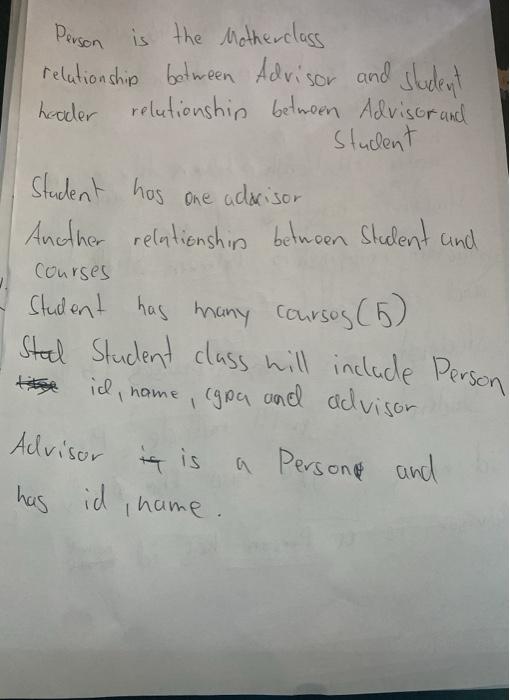 Person is the Motherclass
relationship between Advisor and student
header relationship between Advisor and
Student
Student has one advisor
Another relationship between Student and
courses
Student has many courses (5)
Student class will include Person
id, name, cgpa and advisor
Advisor is a Person and
has id, name.